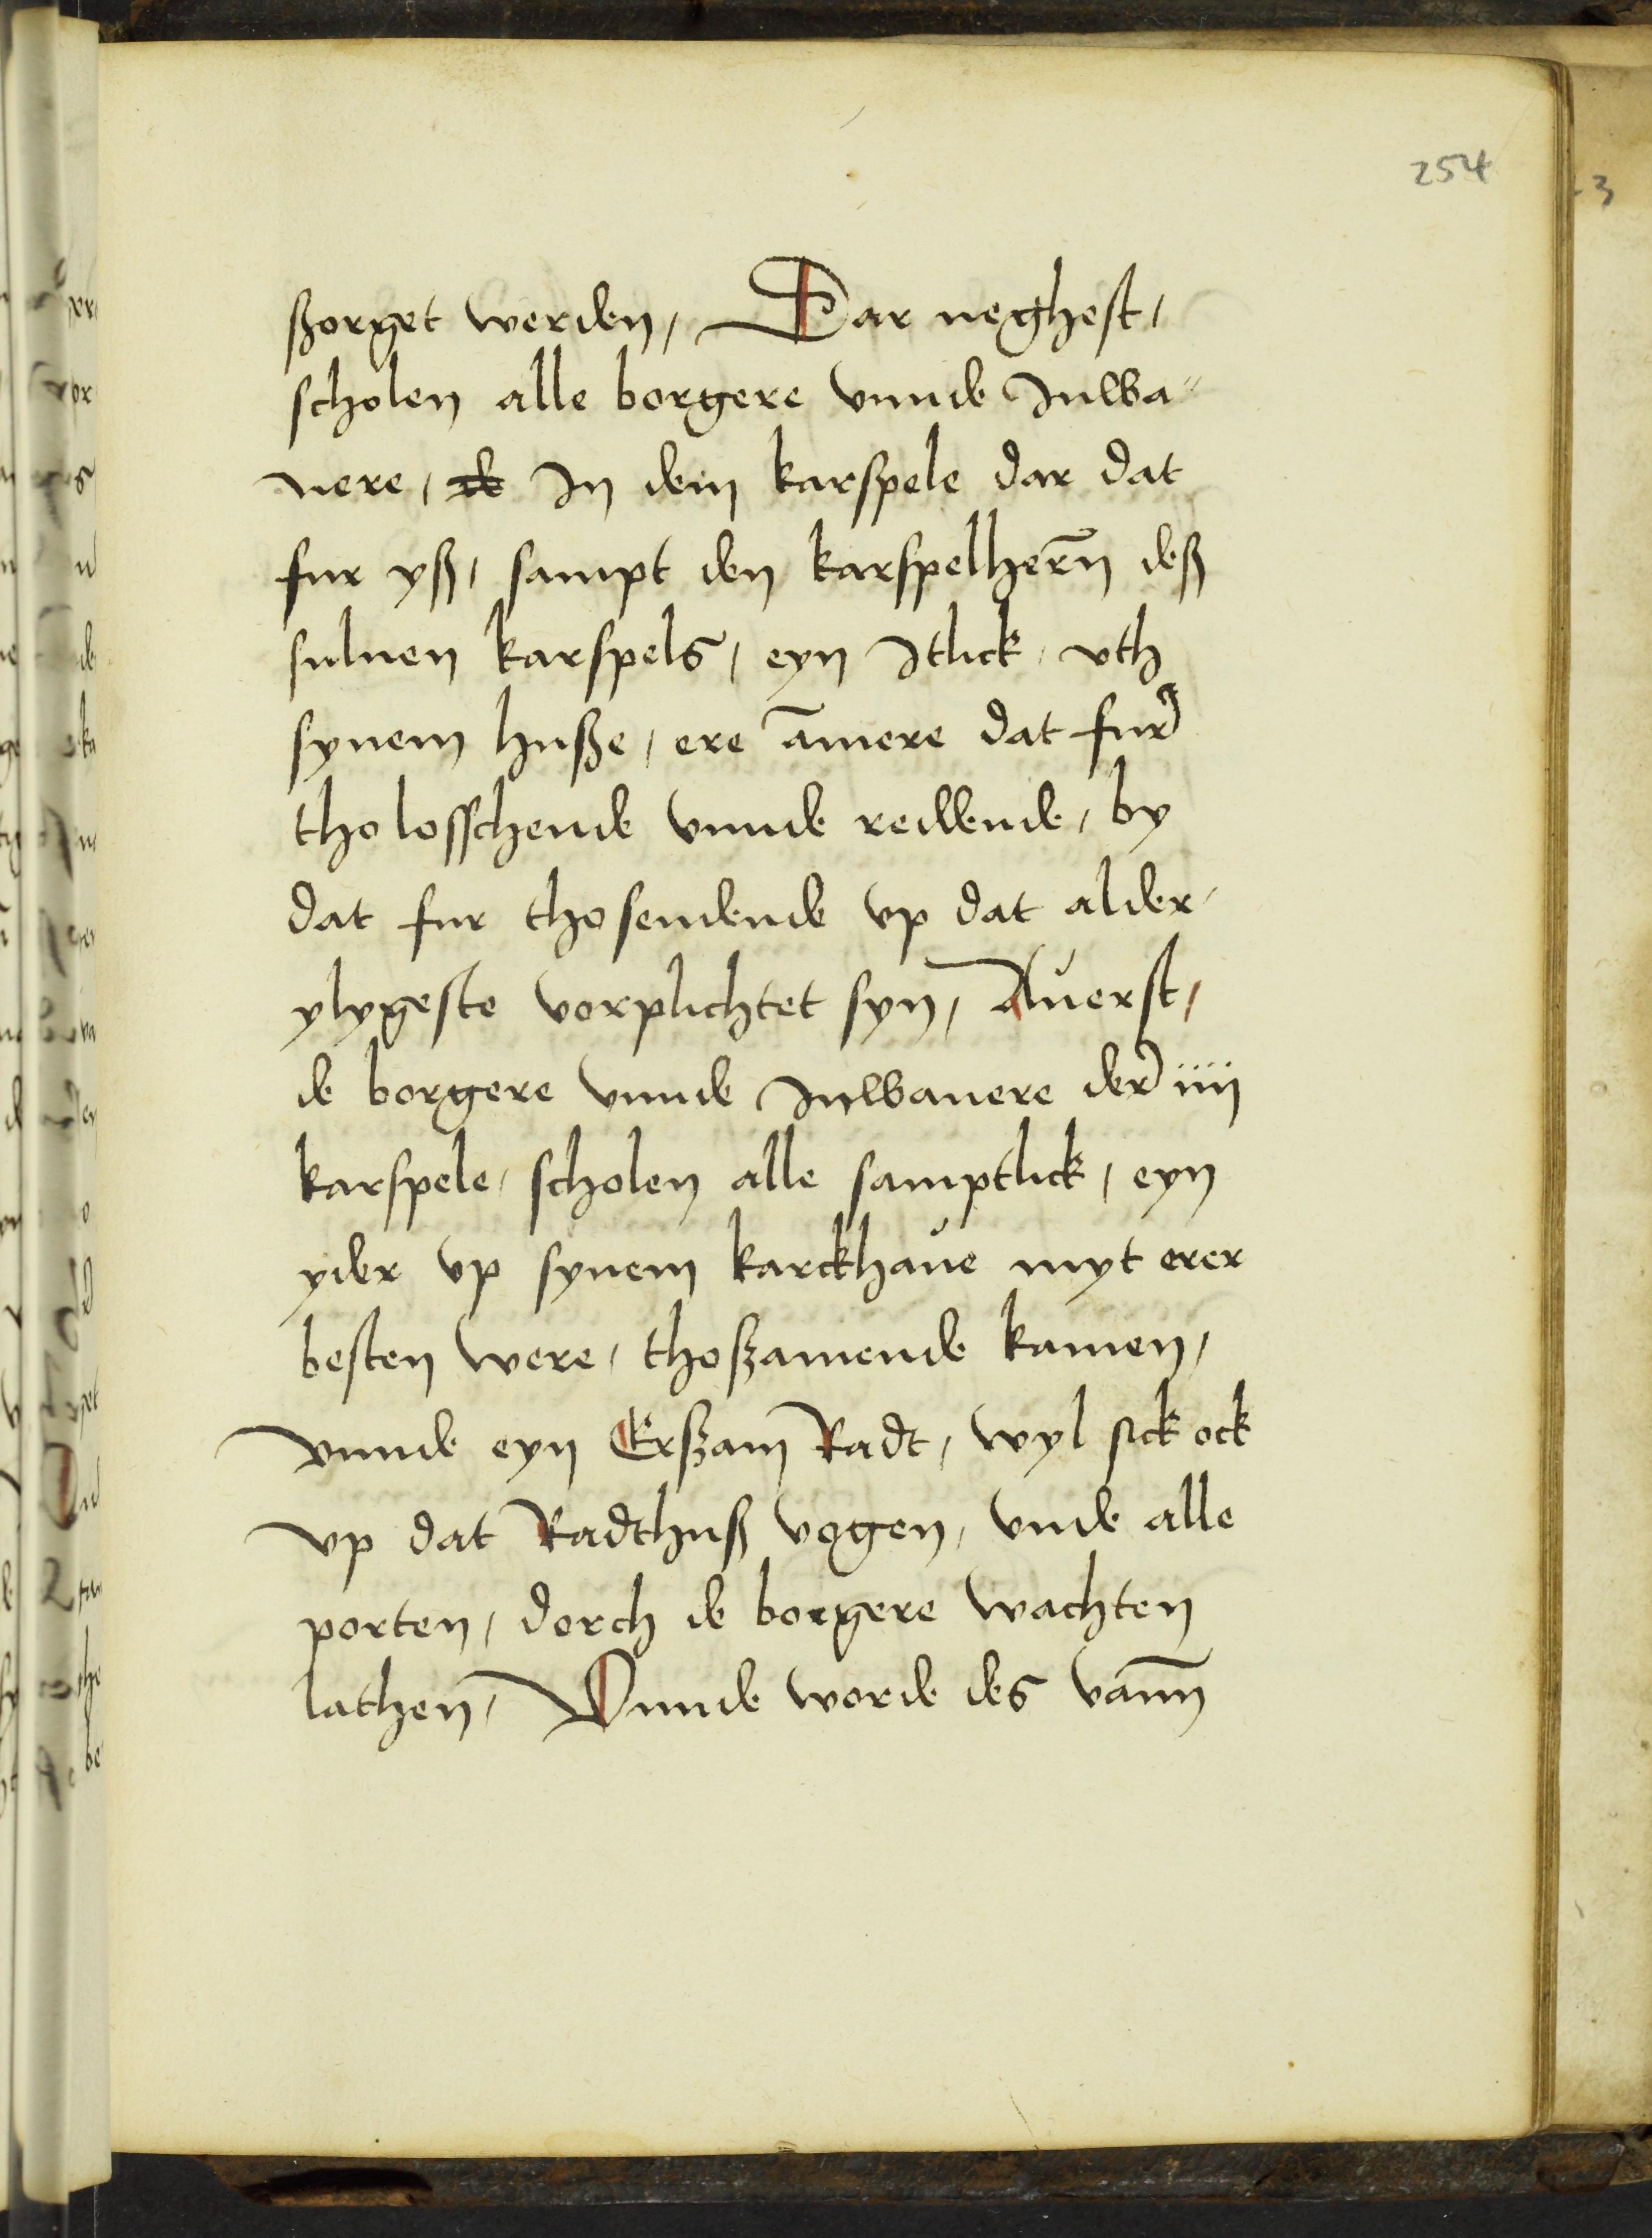 254
ßorget werden, Dar neghest,
scholen alle borgere vnnde Inwa„
nere, de In dem karspele dar dat
fur yß, sampt den karspelhern̄ deß
suluen karspels, eyn Itlick, vth
synem huße, ere ām̄ere dat fur
tho losschende vnnde reddende, by
dat fur tho sendende vp dat alder,
ylygeste vorplichtet syn, Auerst,
de borgere vnnde Inwanere der iiii
karspele, scholen alle samptlick, eyn
yder vp synem karckhaue myt erer
besten were, thoßamende kamen,
vnnde eyn Erßam Radt, wyl sick ock
vp dat Radthuß vogen, vnde alle
porten, dorch de borgere wachten
lathen, Vnnde worde des vann̄